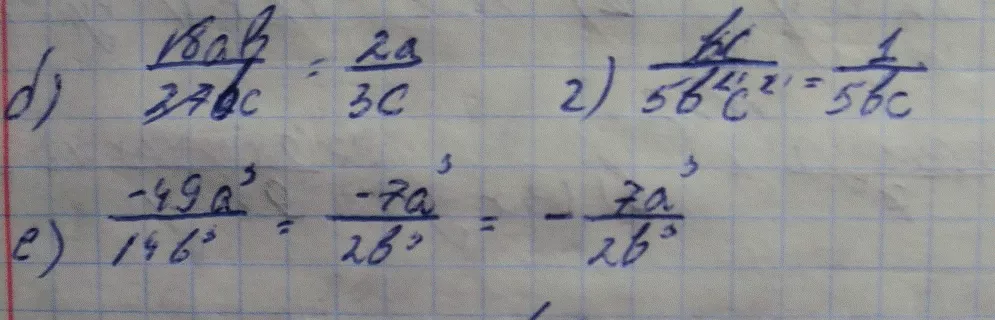 d) 18ab/37bc = 2a/3c г) bc/5b²c² = 1/5bc
e) -49a³/14b³ = -7a³/2b³ = -7a³/2b³